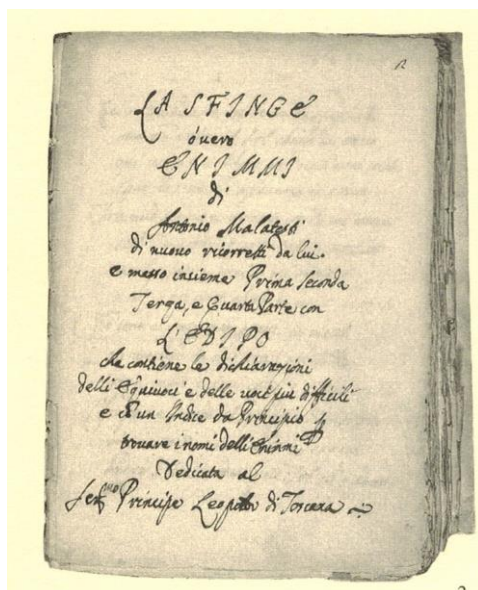 LA SFINGE
óvero
ENIMMI
di
Antonio Malatesti
di nuovo ricorretti da lui.
e messo insieme Prima Seconda
Terza, e Quarta Parte con
L'EDIPO
che contiene le dichiarazioni
delli Equivoci e delle voci piu difficili
e un Indice da Principio
trovare i nomi delli Enimmi
Dedicata al
Ser.mo Principe Leopoldo di Toscana
2